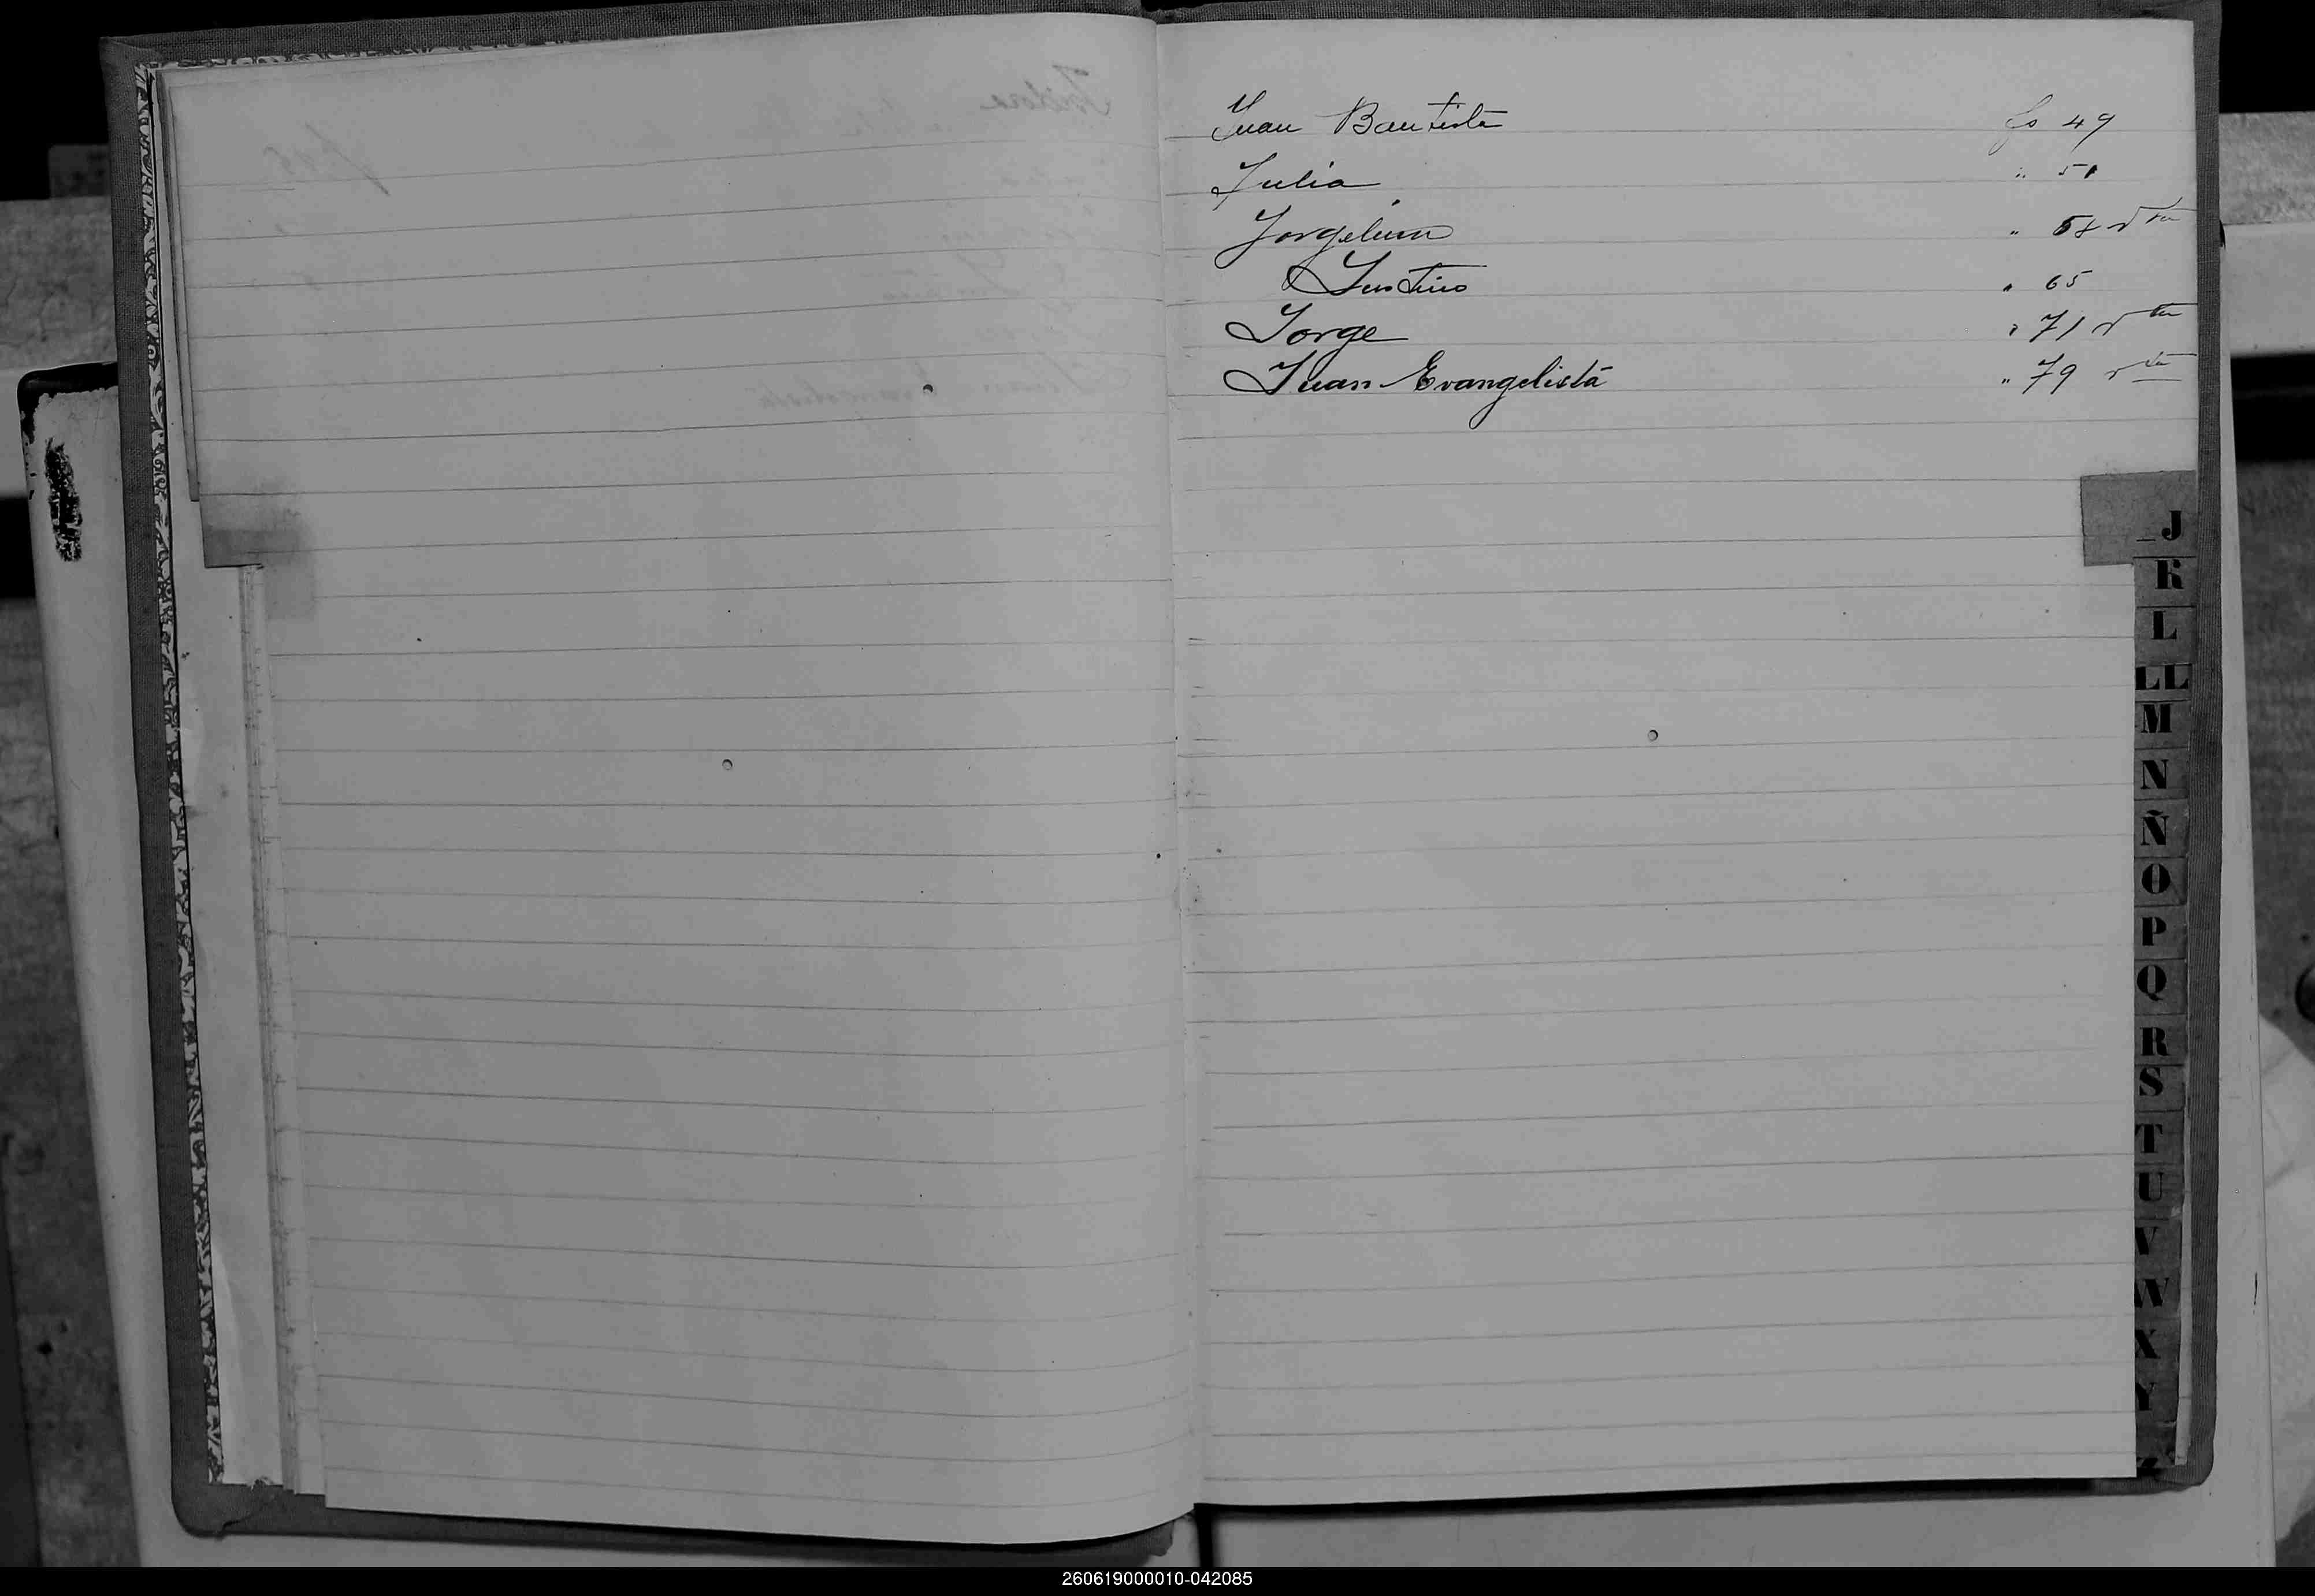 Juan Bautista fs 49
Julia " 51
Jorgelina "
Justino " 65
Jorge " 71 vta
Juan Evangelista " 79 vta
J
K
L
LL
M
N
Ñ
O
P
Q
R
S
T
U
V
W
X
Y
260619000010-042085